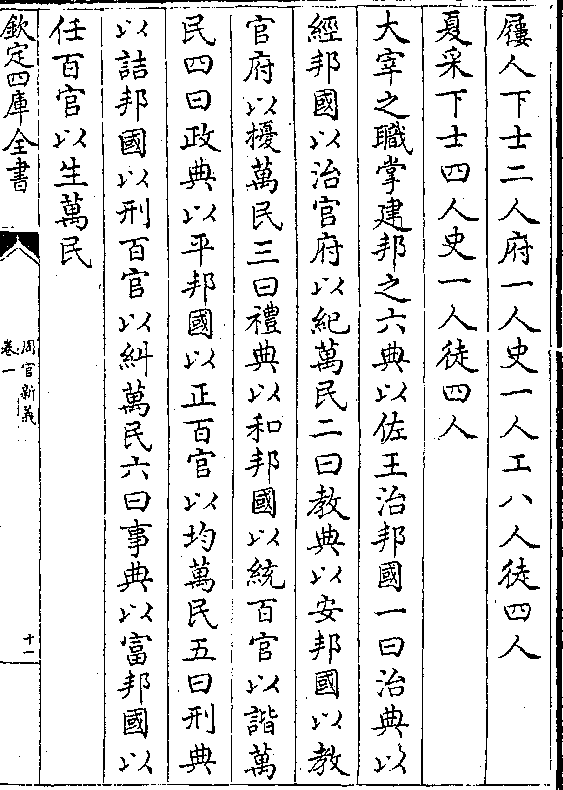 屨人下士二人府一人史一人工八人徒四人
夏采下士四人史一人徒四人
大宰之職掌建邦之六典以佐王治邦國一曰治典以
經邦國以治官府以紀萬民二曰教典以安邦國以教
官府以擾萬民三曰禮典以和邦國以統百官以諧萬
民四曰政典以平邦國以正百官以均萬民五曰刑典
以詰邦國以刑百官以糾萬民六曰事典以富邦國以
任百官以生萬民
欽定四庫全書
周官新義
卷一
十一